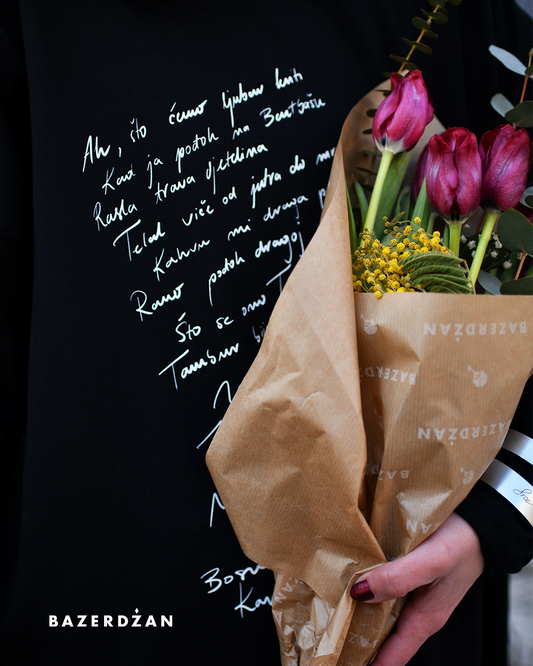 Ah, što ćemo ljubav kriti
Kad ja pođoh na Bentbašu
Rasla trava djetelina
Telal viče od jutra do
Kahvu mi draga
Rano pođoh dragoj
Što se ono
Tambur
BAZERDŽAN
BAZERDŽAN
BAZERDŽAN
BAZERDŽAN